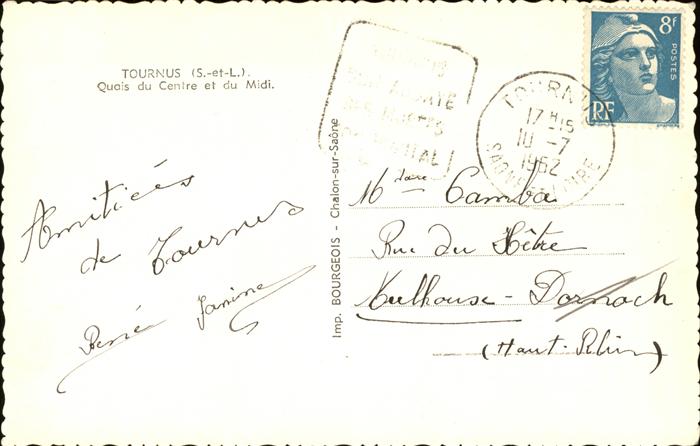 TOURNUS (S.-et-L.).
Quais du Centre et du Midi.
Amitiées
de Tournus
René Janine
Imp. BOURGEOIS - Chalon-sur-Saône
TOURNUS
SON ABBAYE
SES
8F
POSTES
RF
TOURNUS
17H15
10-7
1952
SAONE-ET-LOIRE
Mdame Camba
Rue du Hêtre
Mulhouse-Dornach
(Haut-Rhin)